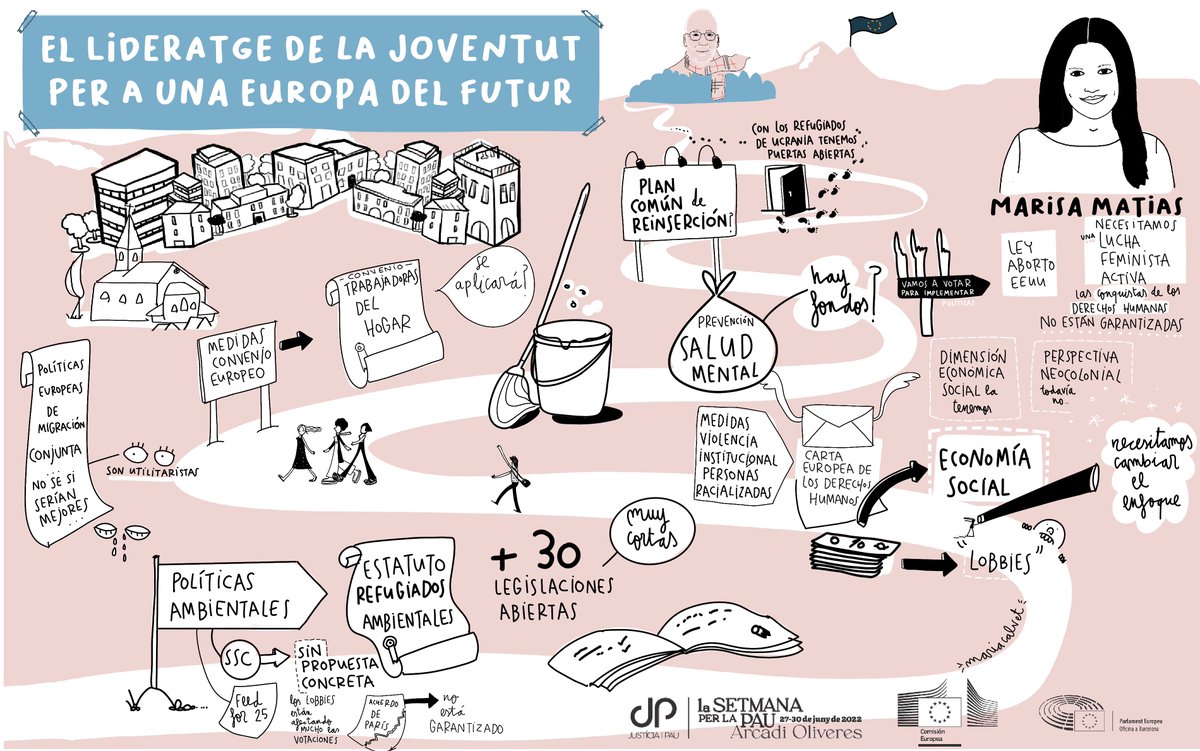 EL LiDERATGE DE LA JOVENTUT
PER A UNA EUROPA DEL FUTUR
CON LOS REFUGIADOS
DE UCRANÍA TENEMOS
PUERTAS ABIERTAS
PLAN
COMÚN de
REINSERCIÓN?
MARISA MATIAS
LEY
ABORTO
EEUU
NECESITAMOS
UNA LUCHA
FEMINISTA
ACTIVA
LAS CONQUISTAS DE LOS
DERECHOS HUMANAS
NO ESTÁN GARANTIZADAS
VAMOS A VOTAR
PARA IMPLEMENTAR
POLÍTICAS
hay
fondos?
PREVENCIÓN
SALUD
MENTAL
CONVENIO
TRABAJADORAS
DEL
HOGAR
se
aplicará?
MEDIDAS
CONVENIO
EUROPEO
POLÍTICAS
EUROPEAS
DE
MIGRACIÓN
CONJUNTA
... NO SE SI
SERÍAN
MEJORES
...
SON UTILITARISTAS
DIMENSIÓN
ECONÓMICA
SOCIAL la
tenemos
PERSPECTIVA
NEOCOLONIAL
todavía
no..
MEDIDAS
VIOLENCIA
INSTITUCIONAL
PERSONAS
RACIALIZADAS
CARTA
EUROPEA DE
LOS DERECHOS
HUMANOS
ECONOMÍA
SOCIAL
necesitamos
cambiar
el
enfoque
"LOBBIES"
POLÍTICAS
AMBIENTALES
ESTATUTO
REFUGIADOS
AMBIENTALES
+ 30
LEGISLACIONES
ABIERTAS
muy
cortas
SSC
SIN
PROPUESTA
CONCRETA
Feed
for 25
los LOBBIES
están
afectando
MUCHO las
VOTACIONES
ACUERDO
DE
PARÍS
no
está
GARANTIZADO
mariacalvet
JP
JUSTÍCIA I PAU
la SETMANA
PER LA PAU 27-30 de juny de 2022
Arcadi Oliveres
Comisión
Europea
Parlament Europeu
Oficina a Barcelona